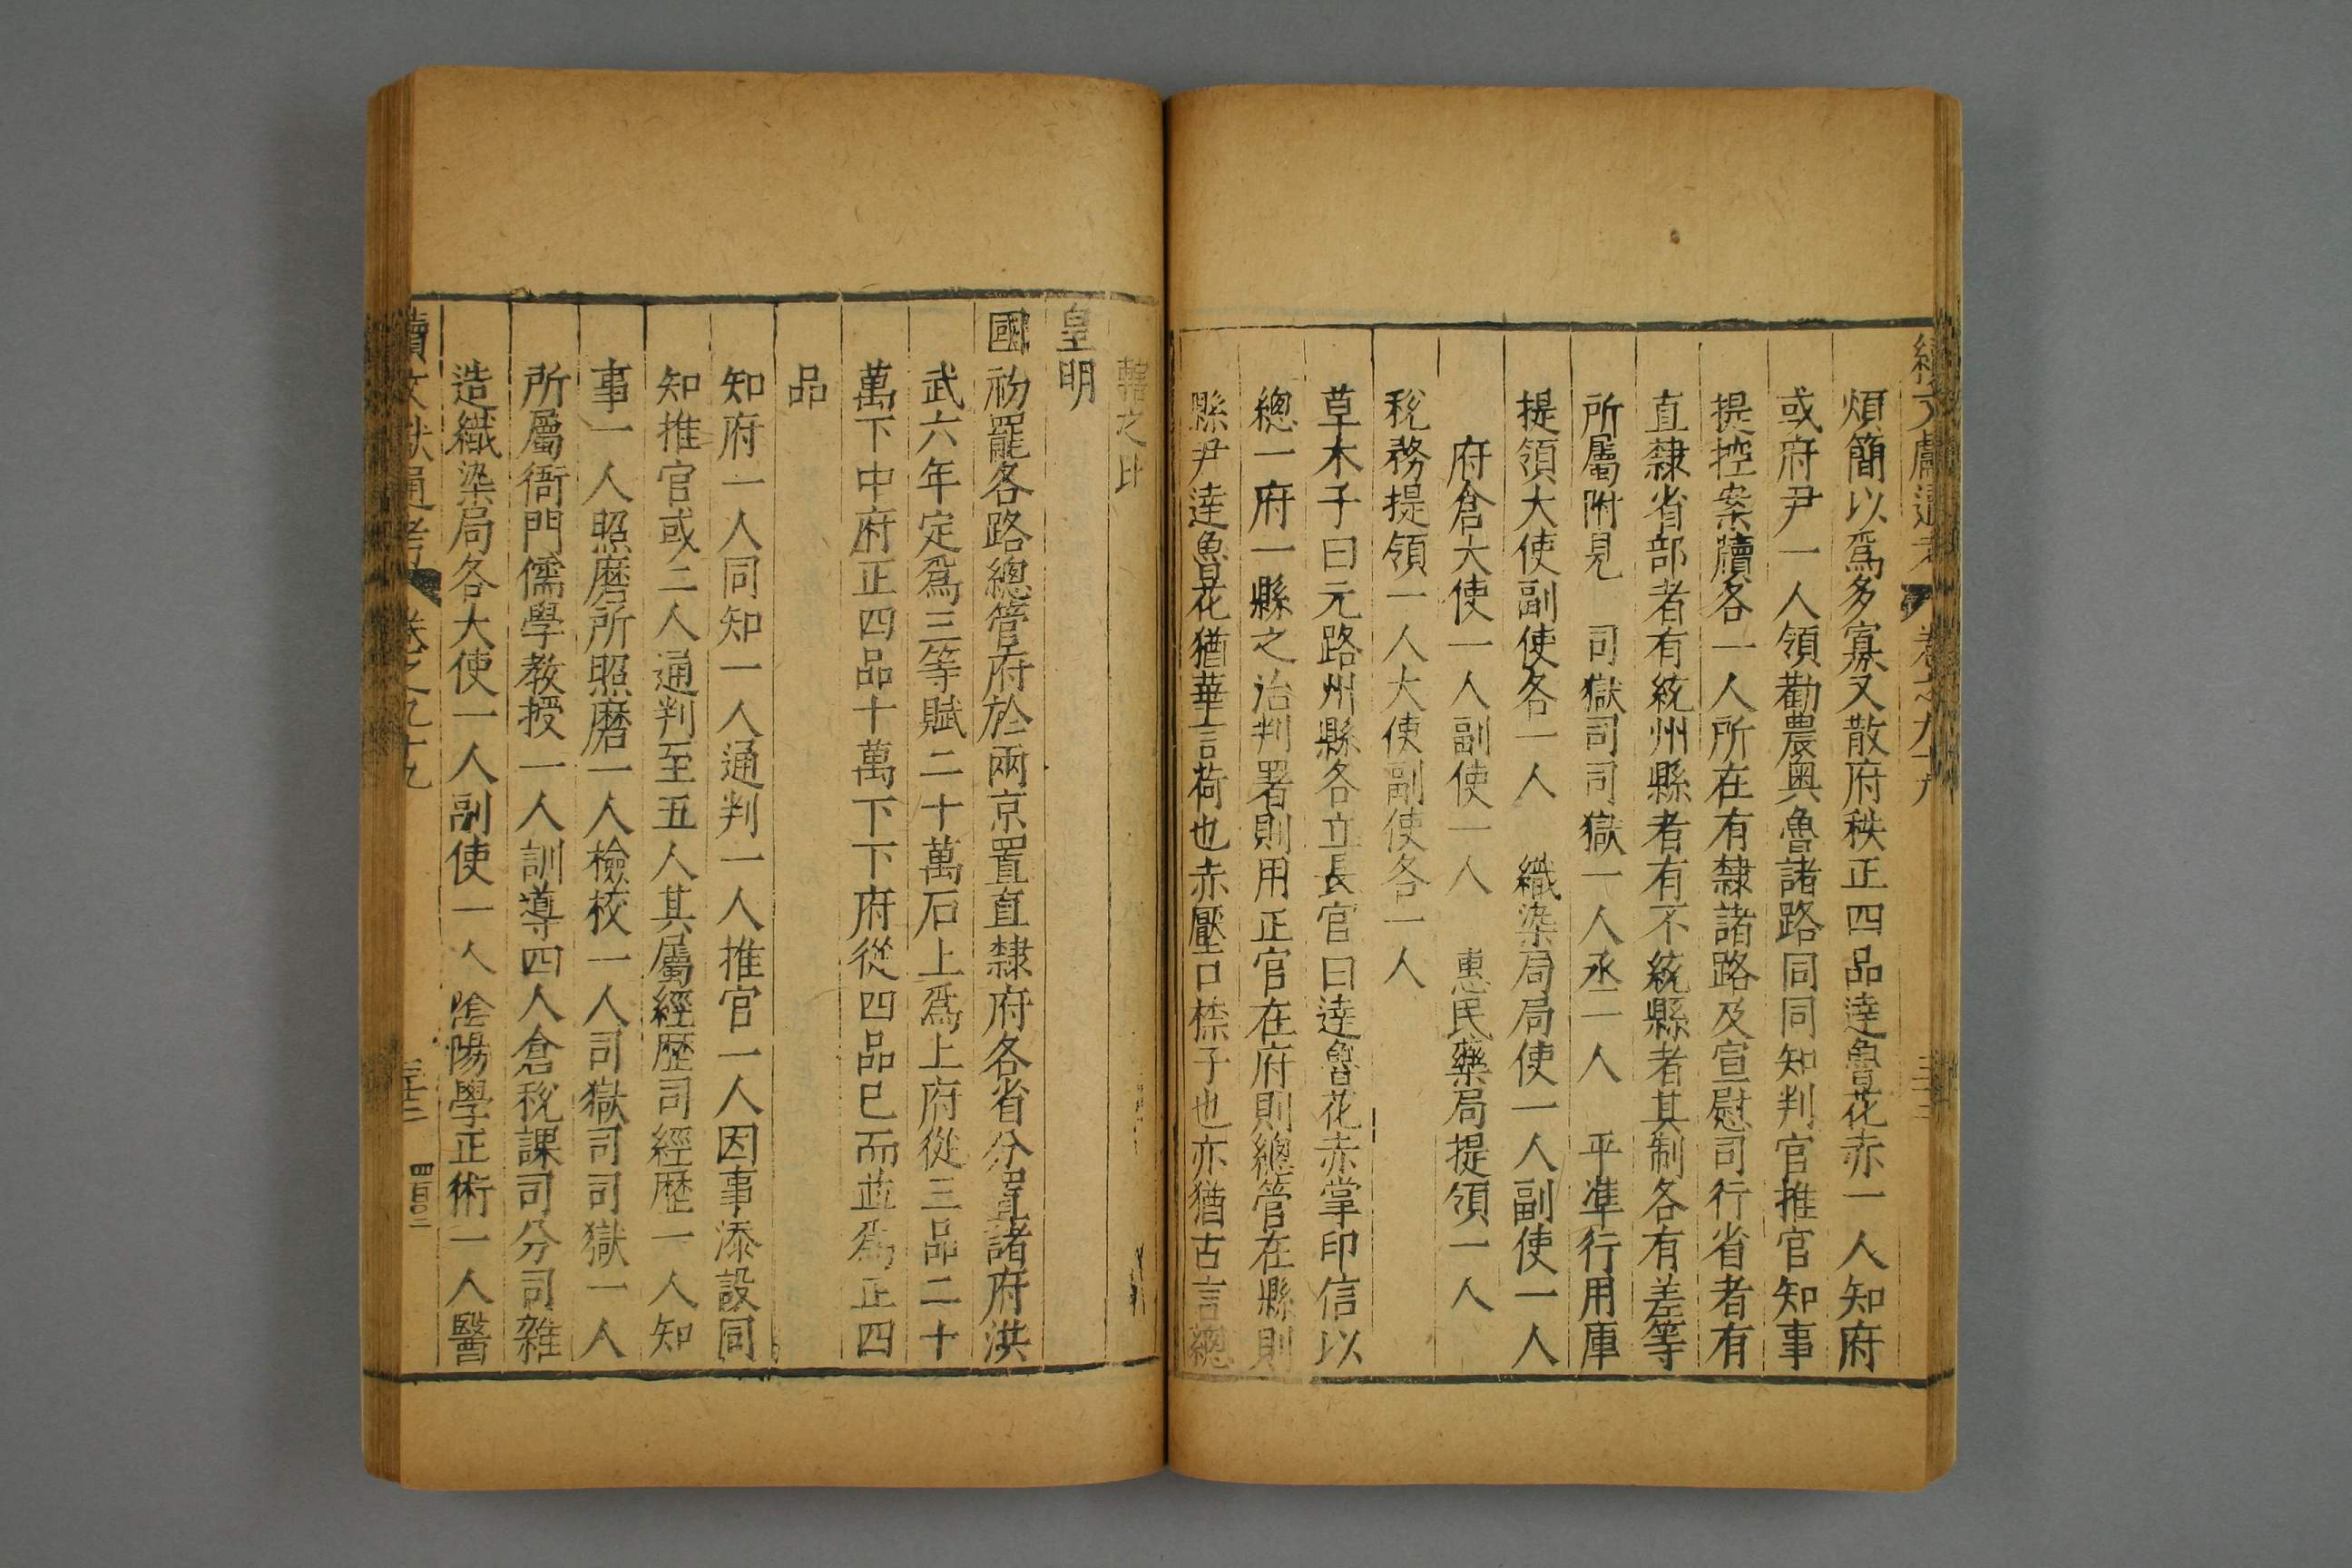 煩簡以爲多寡又散府秩正四品達魯花赤一人知府
或府尹一人領勸農奥魯諸路同同知判官推官知事
提控案牘各一人所在有隸諸路及宣慰司行省者有
直隸省部者有統州縣者有不統縣者其制各有差等
所屬附見 司獄司司獄一人丞一人 平準行用庫
提領大使副使各一人 織染局局使一人副使一人
府倉大使一人副使一人 惠民藥局提領一人
稅務提領一人大使副使各一人
草木子曰元路州縣各立長官曰達魯花赤掌印信以
總一府一縣之治判署則用正官在府則總管在縣則
縣尹達魯花猶華言荷也赤壓口㮏子也亦猶古言總
轄之比
皇明
國初罷各路總管府於兩京置直隸府各省分置諸府洪
武六年定爲三等賦二十萬石上爲上府從三品二十
萬下中府正四品十萬下下府從四品已而並爲正四
品
知府一人同知一人通判一人推官一人因事添設同
知推官或二人通判至五人其屬經歷司經歷一人知
事一人照磨所照磨一人檢校一人司獄司司獄一人
所屬衙門儒學教授一人訓導四人倉稅課司分司雜
造織染局各大使一人副使一人陰陽學正術一人醫
續文獻通考 卷之九十九 四百〇二